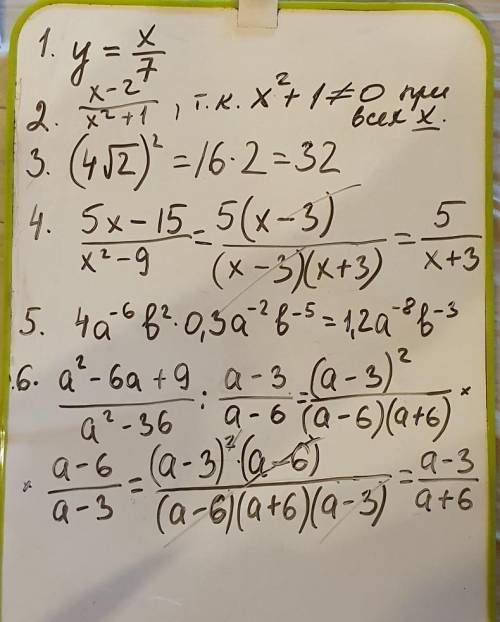 1. y = x/7
2. (x-2)/(x²+1), т.к. x²+1≠0 при
всех x.
3. (4√2)² = 16·2 = 32
4. (5x-15)/(x²-9) = 5(x-3)/((x-3)(x+3)) = 5/(x+3)
5. 4a⁻⁶b²·0,3a⁻²b⁻⁵ = 1,2a⁻⁸b⁻³
6. (a²-6a+9)/(a²-36) : (a-3)/(a-6) = (a-3)²/((a-6)(a+6)) ×
× (a-6)/(a-3) = ((a-3)²·(a-6))/((a-6)(a+6)(a-3)) = (a-3)/(a+6)